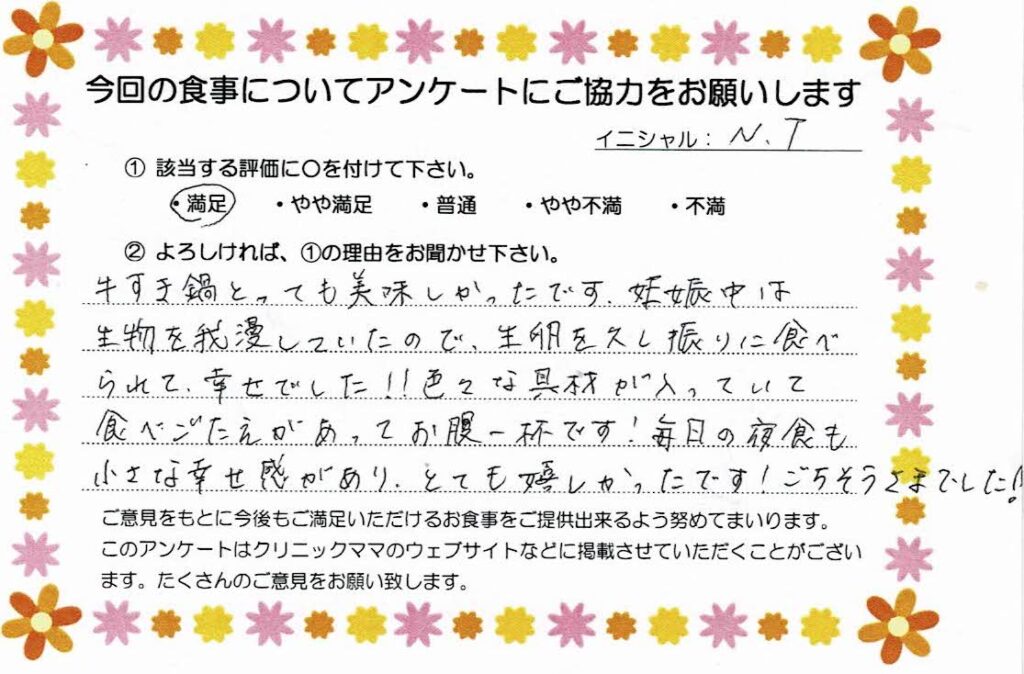 今回の食事についてアンケートにご協力をお願いします
イニシャル： N.T
① 該当する評価に〇を付けて下さい。
・満足 ・やや満足 ・普通 ・やや不満 ・不満
② よろしければ、①の理由をお聞かせ下さい。
牛すき鍋とっても美味しかったです．妊娠中は
生物を我慢していたので、生卵を久し振りに食べ
られて、幸せでした!!色々な具材が入っていて
食べごたえがあってお腹一杯です!毎日の夜食も
小さな幸せ感があり、とても嬉しかったです!ごちそうさまでした!!
ご意見をもとに今後もご満足いただけるお食事をご提供出来るよう努めてまいります。
このアンケートはクリニックママのウェブサイトなどに掲載させていただくことがござい
ます。たくさんのご意見をお願い致します。